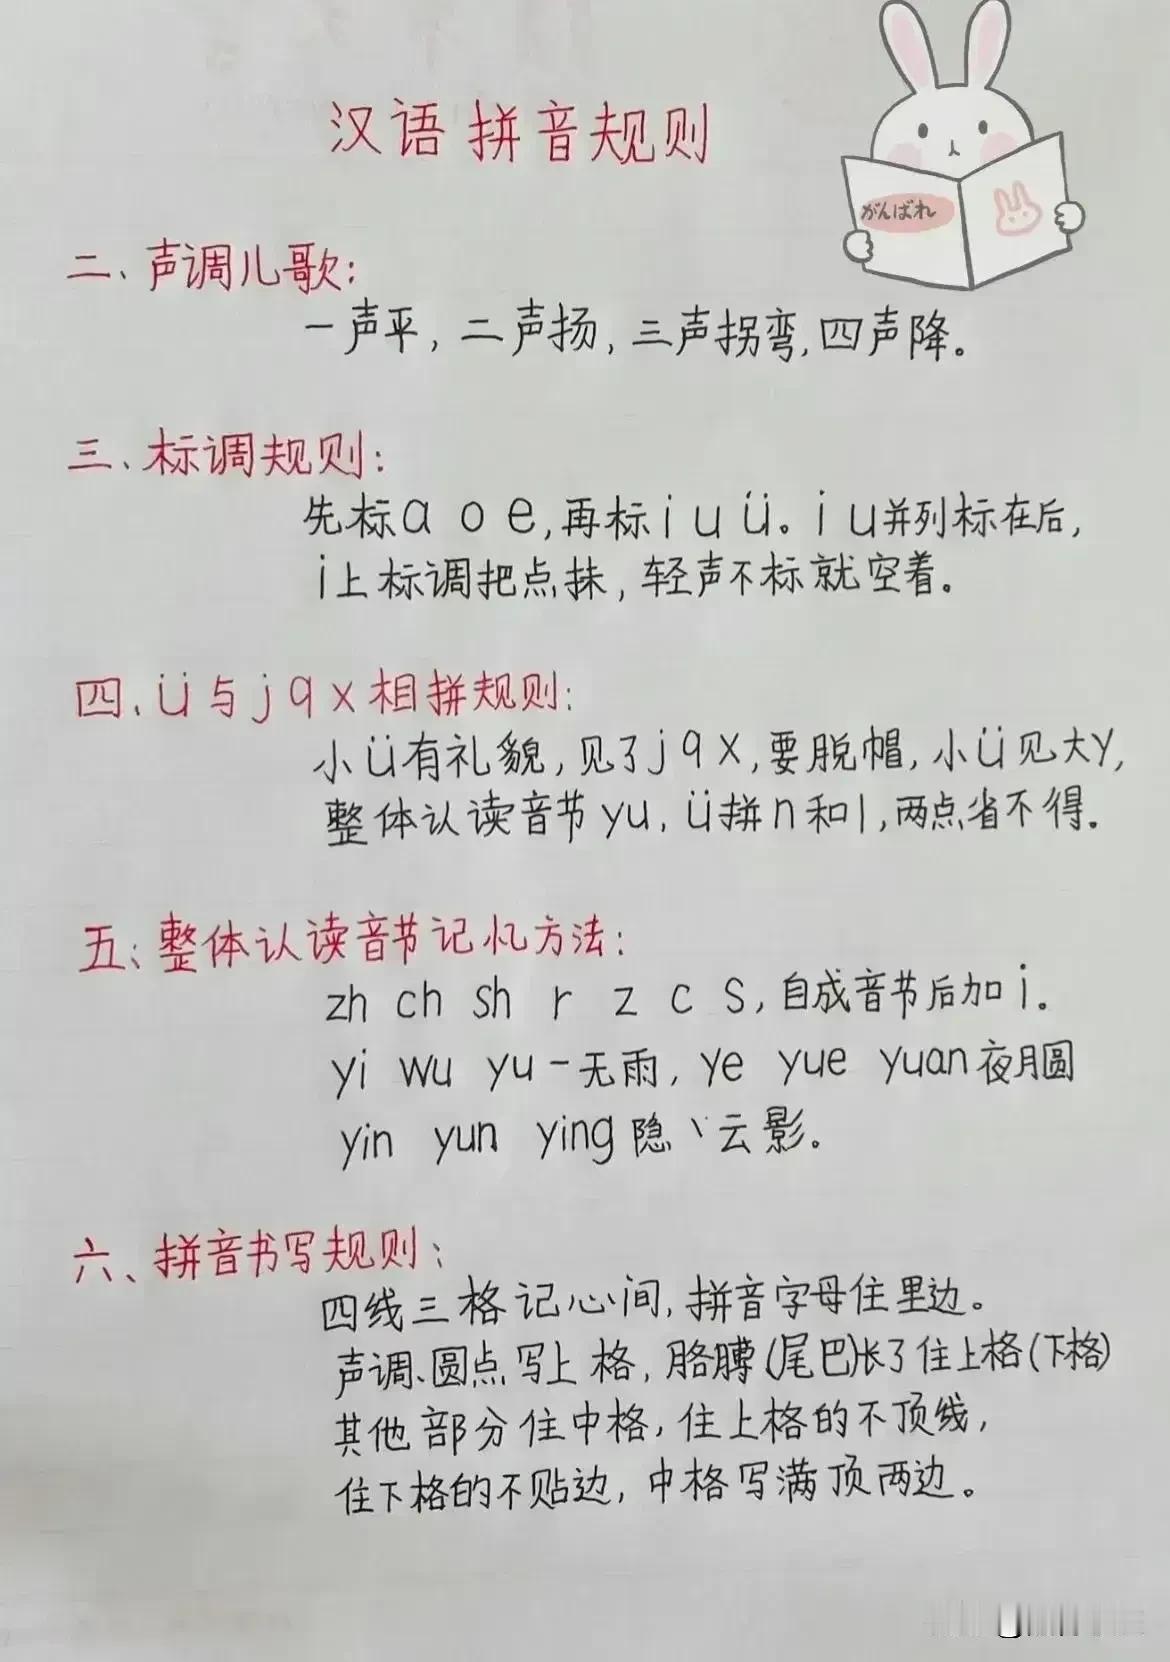 汉语拼音规则
がんばれ
二、声调儿歌:
一声平,二声扬,三声拐弯,四声降。
三、标调规则:
先标a o e,再标i u ü。i u并列标在后,
i上标调把点抹,轻声不标就空着。
四、ü与j q x相拼规则:
小ü有礼貌,见了j q x,要脱帽,小ü见大y,
整体认读音节yu,ü拼n和l,两点省不得。
五:整体认读音节记忆方法:
zh ch sh r z c s,自成音节后加i。
yi wu yu一无雨,ye yue yuan夜月圆
yin yun ying隐、云影。
六、拼音书写规则:
四线三格记心间,拼音字母住里边。
声调、圆点写上格,胳膊(尾巴)长了住上格(下格)
其他部分住中格,住上格的不顶线,
住下格的不贴边,中格写满顶两边。